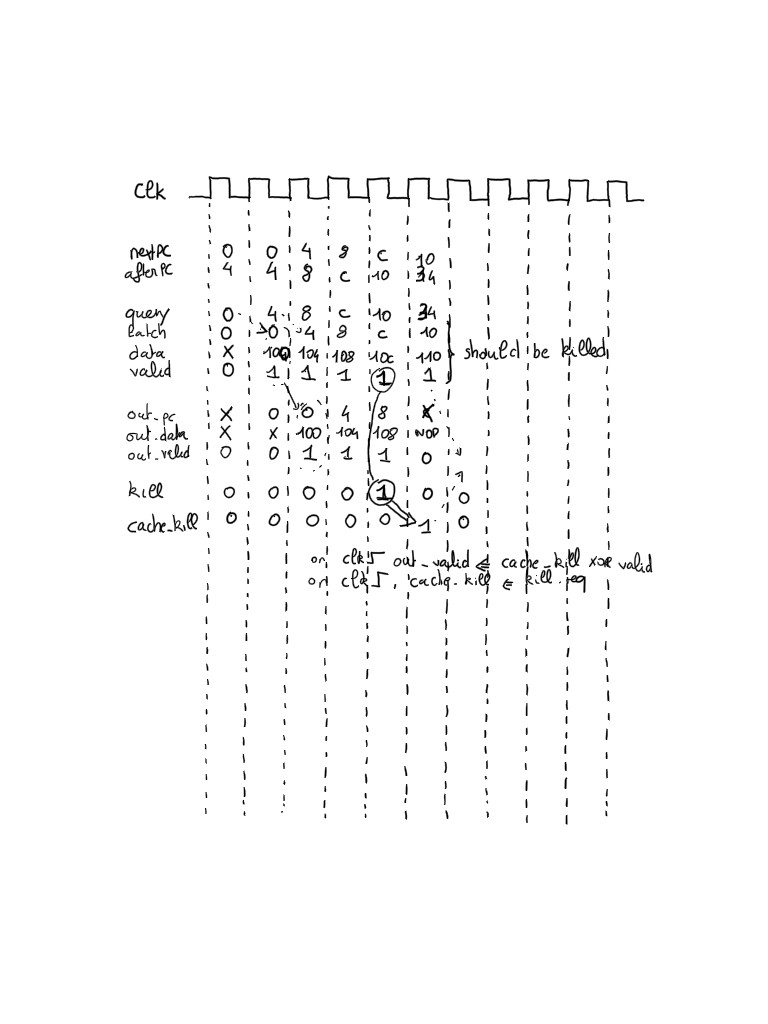 clk
nextPC 0 0 4 8 c 10
afterPC 4 4 8 c 10 34
query 0 4 8 c 10 34
latch 0 0 4 8 c 10
data X 100 104 108 10c 110 should be killed
valid 0 1 1 1 1 1
out_pc X 0 0 4 8 X
out_data X X 100 104 108 NOP
out_valid 0 0 1 1 1 0
kill 0 0 0 0 1 0 0
cache_kill 0 0 0 0 0 1 0
on clk out_valid ⇐ cache_kill xor valid
on clk, cache_kill ⇐ kill_req